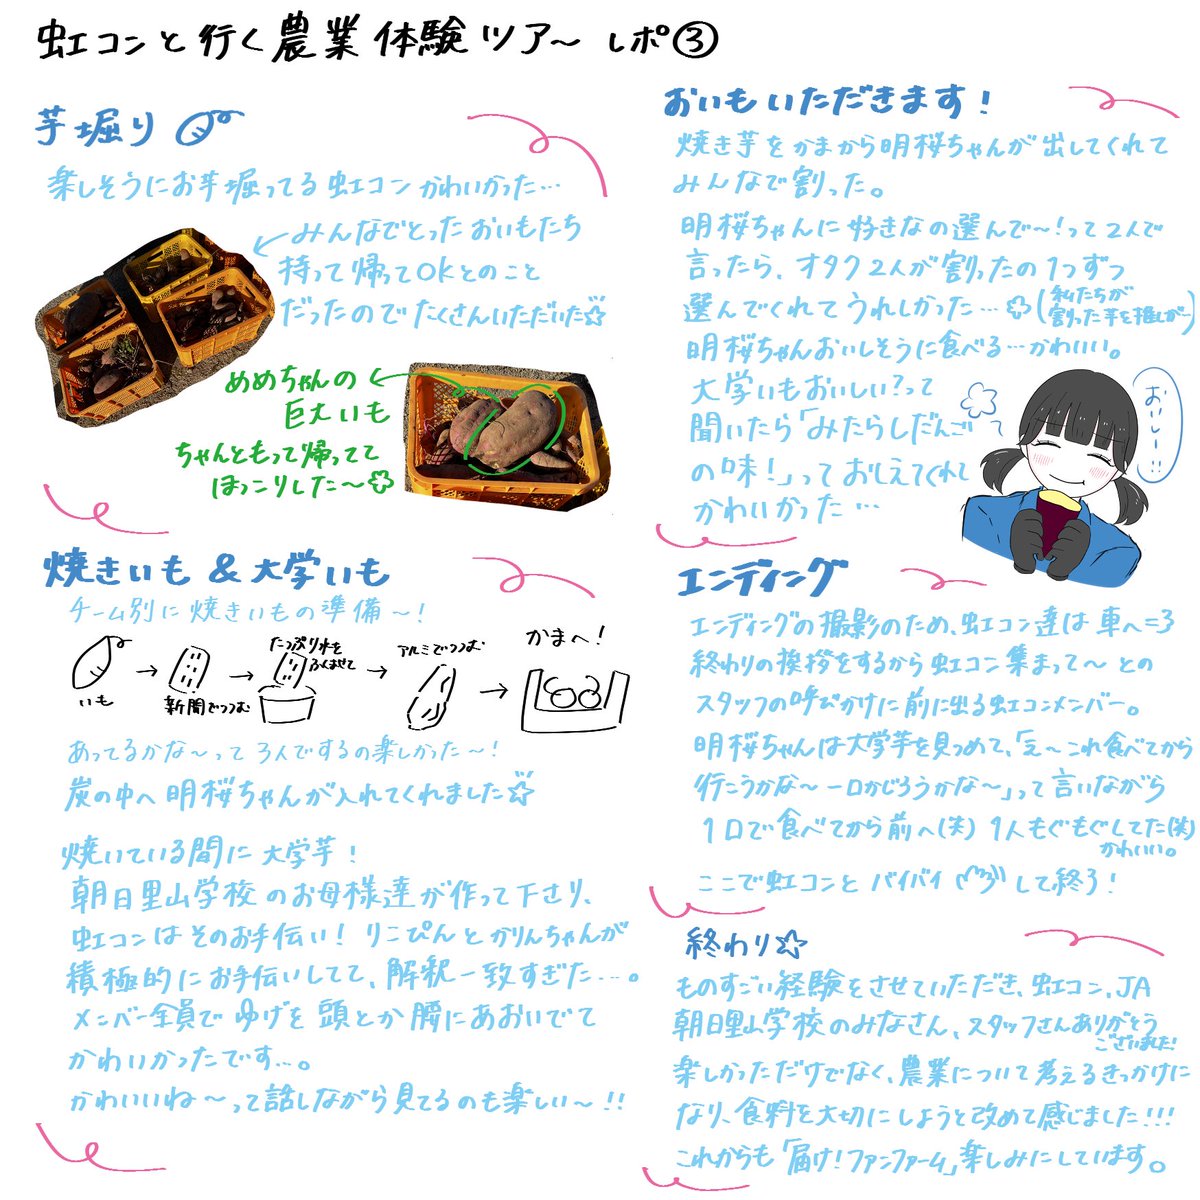 虹コンと行く農業体験ツアー レポ③
芋掘り
楽しそうにお芋掘ってる虹コン かわいかった…
みんなでとったおいもたち
持って帰ってOKとのこと
だったのでたくさんいただいた
めめちゃんの
巨大いも
ちゃんともって帰ってて
ほっこりした〜
焼きいも & 大学いも
チーム別に焼きいもの準備〜!
いも
新聞でつつむ
たっぷり水を
ふくませて
アルミでつつむ
かまへ!
あってるかな〜って3人でするの楽しかった〜!
炭の中へ明桜ちゃんが入れてくれました
焼いている間に大学芋!
朝日里山学校のお母様達が作って下さり、
虹コンはそのお手伝い! りこぴんとかりんちゃんが
積極的にお手伝いしてて、解釈一致すぎた…。
メンバー全員でゆげを頭とか腰にあおいでて
かわいかったです…。
かわいいね〜って話しながら見てるのも楽しい〜!!
おいもいただきます!
焼き芋をかまから明桜ちゃんが出してくれて
みんなで割った。
明桜ちゃんに好きなの選んで〜!って2人で
言ったら、オタク2人が割ったの1つずつ
選んでくれてうれしかった…
(私たちが
割った芋を推しが…)
明桜ちゃんおいしそうに食べる…かわいい。
大学いもおいしい?って
聞いたら「みたらしだんご
の味!」っておしえてくれて
かわいかった…
おいしー!!
エンディング
エンディングの撮影のため、虹コン達は車へ=3
終わりの挨拶をするから虹コン集まって〜との
スタッフの呼びかけに前に出る虹コンメンバー。
明桜ちゃんは大学芋を見つめて、「え〜これ食べてから
行こうかな〜一口かじろうかな〜」って言いながら
1口で食べてから前へ(笑) 1人もぐもぐしてた(笑)
かわいい。
ここで虹コンとバイバイ して終了!
終わり
ものすごい経験をさせていただき、虹コン、JA
朝日里山学校のみなさん、スタッフさんありがとう
ございました!
楽しかっただけでなく、農業について考えるきっかけに
なり、食料を大切にしようと改めて感じました!!!
これからも「届け!ファンファーム」楽しみにしています。